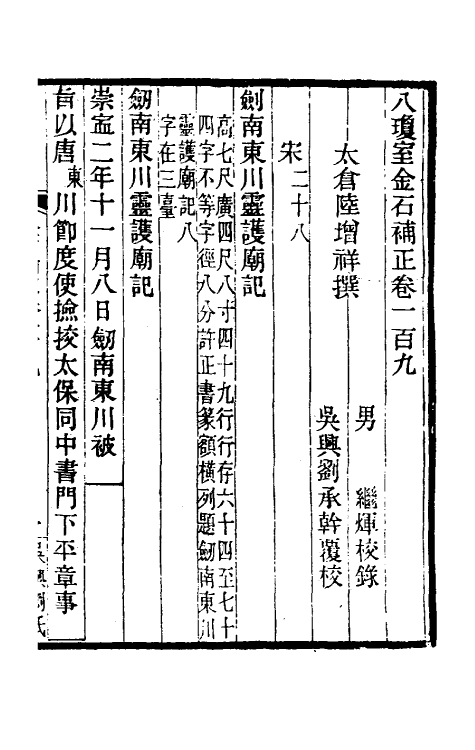 八瓊室金石補正卷一百九
太倉陸增祥撰
男　繼煇校錄
吳興劉承幹覆校
宋二十八
劍南東川靈護廟記
高七尺廣四尺八寸四十九行行存六十四至七十
四字不等字徑八分許正書篆額橫列題劒南東川
靈護廟記八
字在三臺
劒南東川靈護廟記
崇寍二年十一月八日劒南東川被
旨以唐東川節度使撿挍太保同中書門下平章事